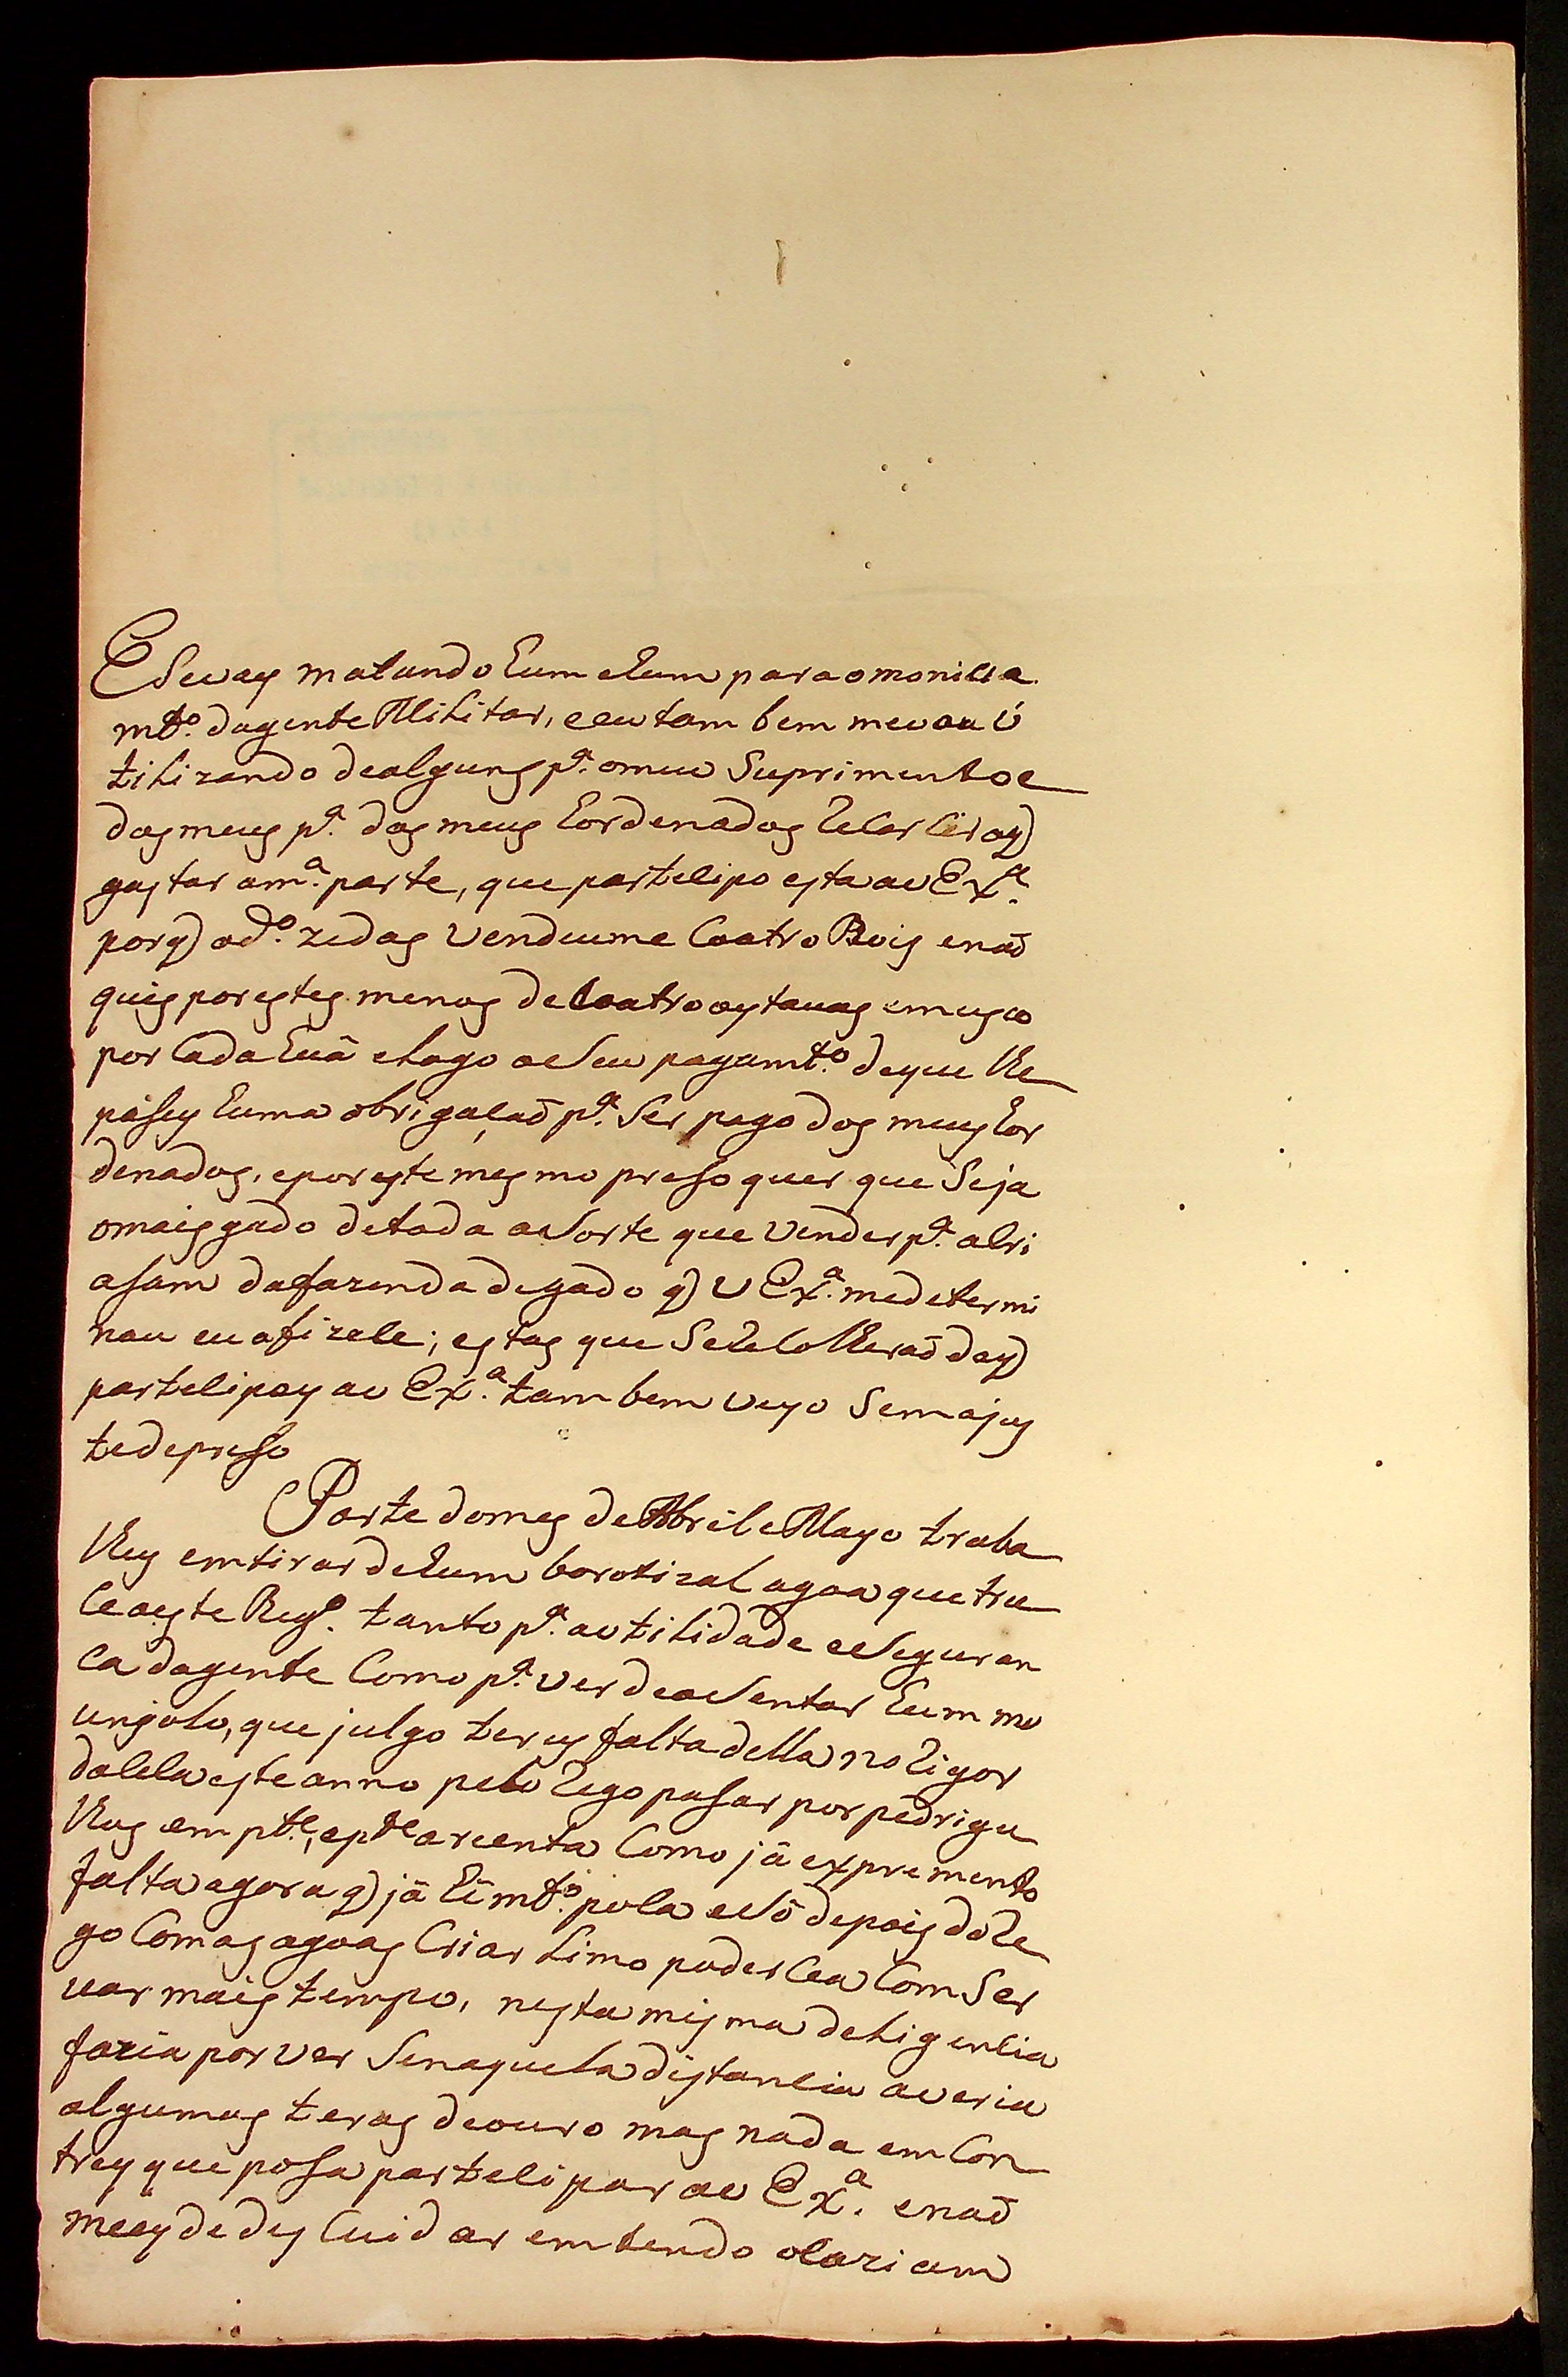 ESevay matando hum ehum para omonicia
mto. dagente Militar, eeu tam bem mevou ú
tilizando dealguns pa. omeu Suprimento e
dos meus pa. dos meus hordenados
gastar amа. parte, que partecipo esta av Exa.
porq) odo. zedas Vendeume Coatro Bois enaõ
quis por estes menos de Coatro oytavas emeya
por Cada huã elogo oSeu pagamto. deque lhe
pásey huma obrigaçaõ pa. Ser pago dos meus hor
denados, epor este mesmo preso quer que Seja
omais gado detoda aSorte que Vender pa. acri
asam dafazenda degado q) V Exa. medetermi
nou eu afizece; estas que Se Recolheraõ daq)
partecipey av Exa. tam bem veyo Sem ajus
tedepreso
Parte domes de Abril e Mayo traba
lhey emtirar dehum borotizal agoa que tru
ce aeste Regº. tanto pa. autilidade eSeguran
ca dagente Como pa. ver deaSentar hum mo
unjolo, que julgo terey falta della no Rigor
daseca este anno pelo Rego pasar por pedrigu
lhos em pte., epte. areenta Como já expremento
falta agora q) já hé mto. poca eSó depois do Re
go Com as agoas Criar Limo poderſea Com Ser
var mais tempo, nesta mesma deligencia
fazia por ver Senaquela distancia averia
algumas teras deouro mas nada em Con
trey que posa partecipar av Exa. enaõ
meey dedes Cuidar emtendo ocazi am